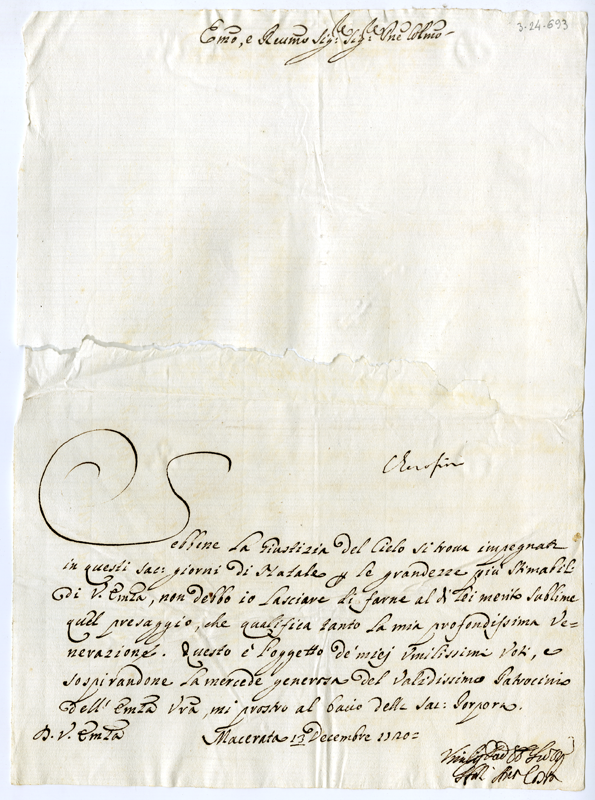 3-24-693
Emo, e Revmo Sig.r Sig.r Pne Colmo
Sebbene la Giustizia del Cielo si trova impegnata
in questi sac: giorni di Natale p le grandezze più stimabili
di V. Emza, non debbo io lasciare di farne al di lei merito sublime
quel presaggio, che qualifica tanto la mia profondissima Ve=
nerazione. Questo è l'oggetto de' miej Vmilissimi Voti, e
sospirandone la mercede generosa del Validissimo Patrocinio
dell' Emza Vra, mi prostro al bacio della Sac: Porpora.
D. V. Emza Macerata 13 Decembre 1720=